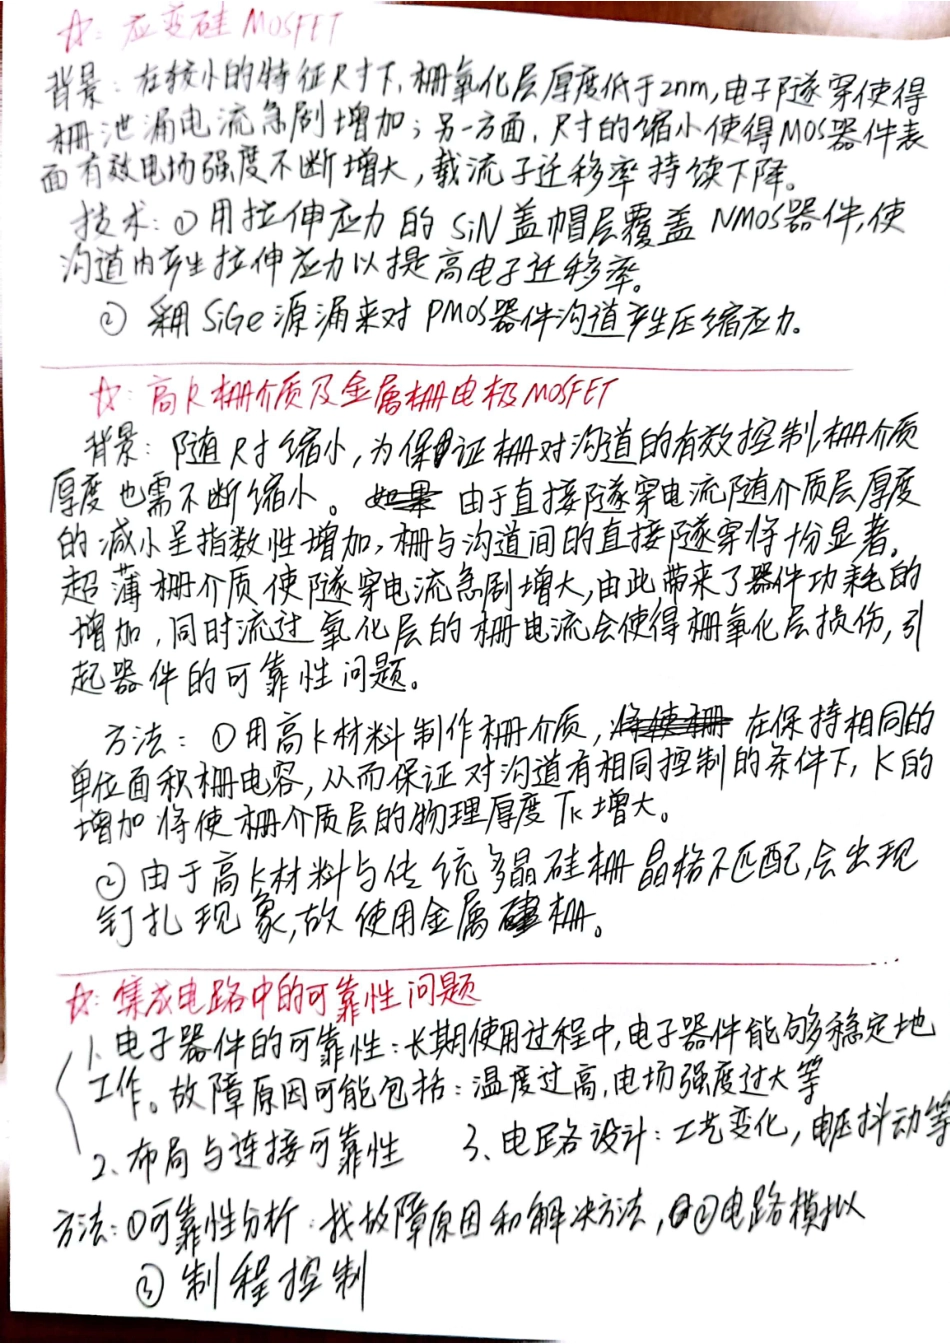 ☆: 应变硅MOSFET
背景: 在较小的特征尺寸下,栅氧化层厚度低于2nm,电子隧穿使得
栅泄漏电流急剧增加;另一方面,尺寸的缩小使得MOS器件表
面有效电场强度不断增大,载流子迁移率持续下降。
技术: ①用拉伸应力的SiN盖帽层覆盖NMOS器件,使
沟道内产生拉伸应力以提高电子迁移率。
② 采用SiGe源漏来对PMOS器件沟道产生压缩应力。
☆: 高K栅介质及金属栅电极MOSFET
背景: 随尺寸缩小,为保证栅对沟道的有效控制,栅介质
厚度也需不断缩小。由于直接隧穿电流随介质层厚度
的减小呈指数性增加,栅与沟道间的直接隧穿将十份显著。
超薄栅介质使隧穿电流急剧增大,由此带来了器件功耗的
增加,同时流过氧化层的栅电流会使得栅氧化层损伤,引
起器件的可靠性问题。
方法: ①用高K材料制作栅介质,在保持相同的
单位面积栅电容,从而保证对沟道有相同控制的条件下,K的
增加将使栅介质层的物理厚度Tk增大。
②由于高K材料与传统多晶硅栅晶格不匹配,会出现
钉扎现象,故使用金属栅。
☆: 集成电路中的可靠性问题
1、电子器件的可靠性:长期使用过程中,电子器件能够稳定地
工作。故障原因可能包括:温度过高,电场强度过大等
2、布局与连接可靠性 3、电路设计:工艺变化,电压抖动等
方法:①可靠性分析:找故障原因和解决方法,②电路模拟
③制程控制